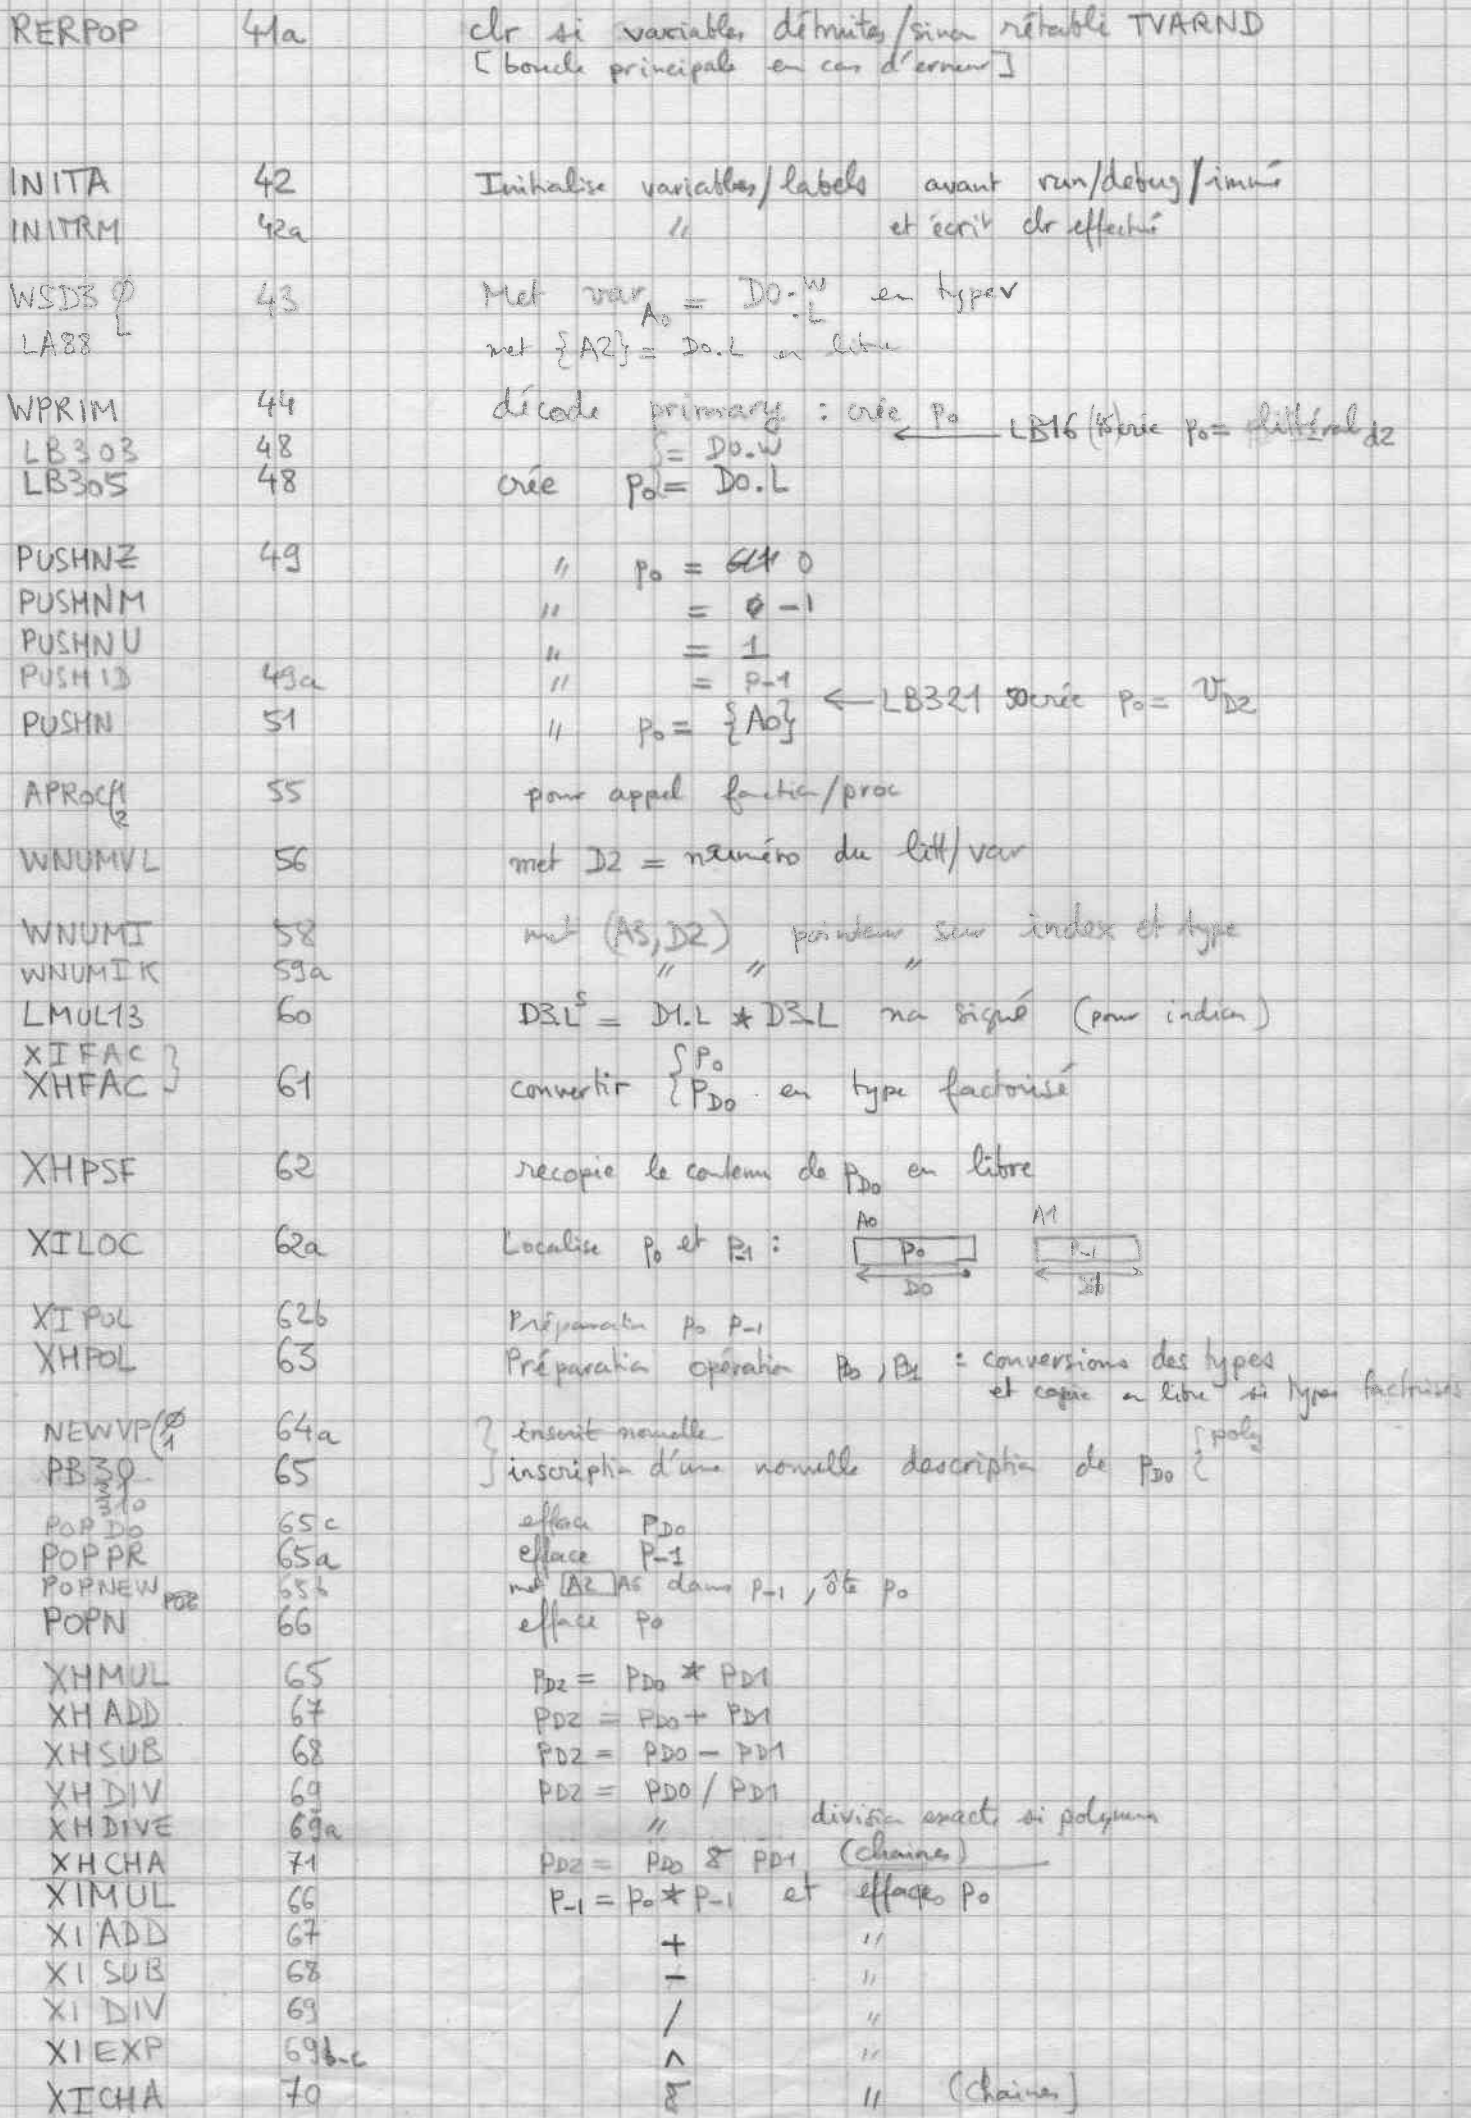 RERPOP 41a clr si variables détruites/sinon rétabli TVARND
[boucle principale en cas d'erreur]
INITA 42 Initialise variables/labels avant run/debug/immé
INITRM 42a " et écrit clr effectué
WSD3 0 43 Met var A0 = D0.W en type v
L .L
LA88 met {A2} = D0.L en libre
WPRIM 44 décode primary : crée p0 ← LB16 crée p0 = littéral d2
LB303 48 { = D0.W
LB305 48 crée p0 = D0.L
PUSHNZ 49 " p0 = 0
PUSHNM " = -1
PUSHNU " = 1
PUSHID 49a " = p-1
← LB321 50 crée p0 = VD2
PUSHN 51 " p0 = {A0}
APROC(1 2 55 pour appel fonction/proc
WNUMVL 56 met D2 = numéro du litt/var
WNUMI 58 met (A3,D2) pointeur sur index et type
WNUMIK 59a " " "
LMUL13 60 D3.L = D1.L * D3.L non signé (pour indices)
XIFAC } { p0
XHFAC } 61 convertir { pD0 en type factorisé
XHPSF 62 recopie le contenu de pD0 en libre
A0 A1
XILOC 62a Localise p0 et p-1 : p0 p-1
D0 D1
XIPOL 62b Préparation p0 p-1
XHPOL 63 Préparation opération pD0, pD1 : conversions des types
et copie en libre si types factorisés
NEWVP(0 1 64a } inscrit nouvelle { poly
PB30 65 } inscription d'une nouvelle description de pD0 {
310
POPD0 65c efface pD0
POPPR 65a efface p-1
POPNEW 65b met [A2]A6 dans p-1, ôte p0
POPN 66 efface p0
XHMUL 65 pD2 = pD0 * pD1
XHADD 67 pD2 = pD0 + pD1
XHSUB 68 pD2 = pD0 - pD1
XHDIV 69 pD2 = pD0 / pD1
XHDIVE 69a " division exacte si polynom
XHCHA 71 pD2 = pD0 & pD1 (chaines)
XIMUL 66 p-1 = p0 * p-1 et effaces p0
XIADD 67 + "
XISUB 68 - "
XIDIV 69 / "
XIEXP 69b-c ^ "
XICHA 70 & " (chaines)